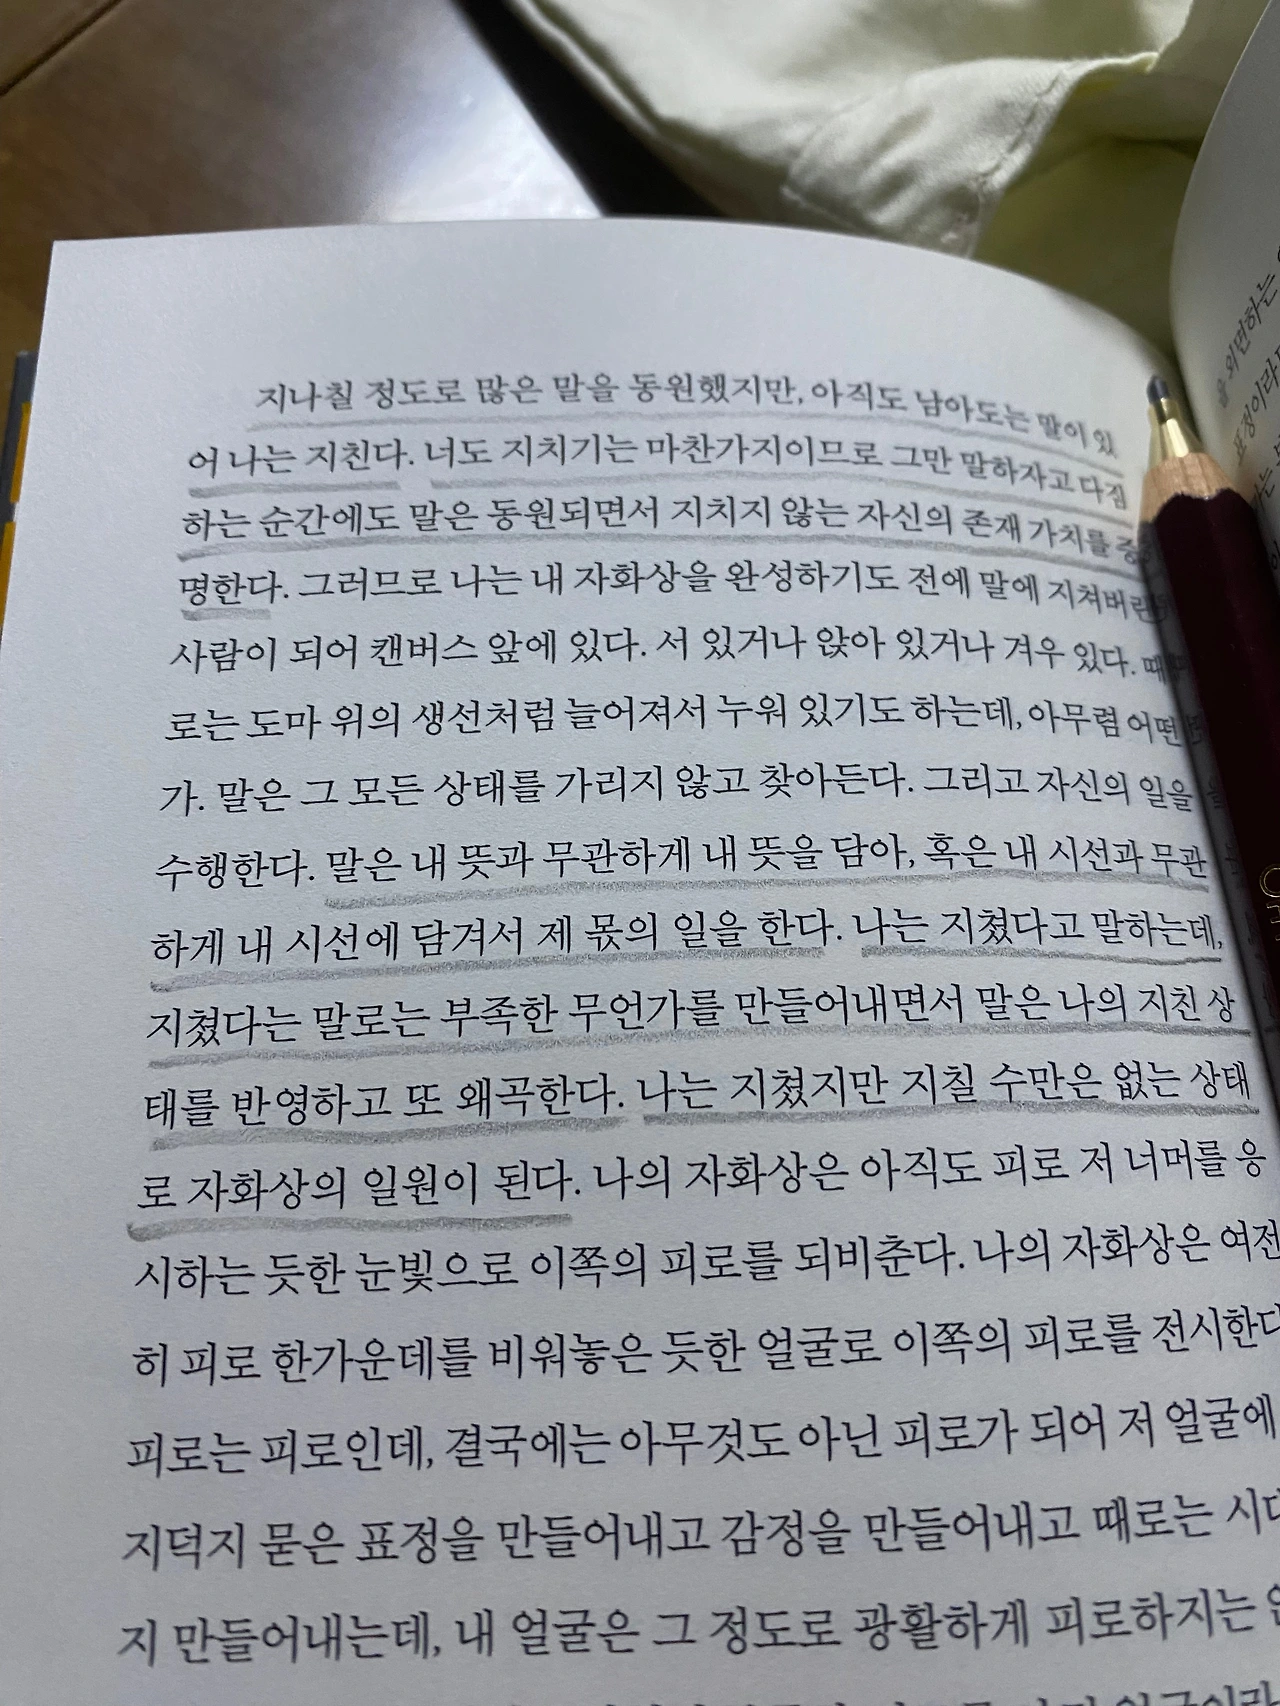 지나칠 정도로 많은 말을 동원했지만, 아직도 남아도는 말이 있
어 나는 지친다. 너도 지치기는 마찬가지이므로 그만 말하자고 다짐
하는 순간에도 말은 동원되면서 지치지 않는 자신의 존재 가치를 증
명한다. 그러므로 나는 내 자화상을 완성하기도 전에 말에 지쳐버린
사람이 되어 캔버스 앞에 있다. 서 있거나 앉아 있거나 겨우 있다. 때
로는 도마 위의 생선처럼 늘어져서 누워 있기도 하는데, 아무렴 어떤
가. 말은 그 모든 상태를 가리지 않고 찾아든다. 그리고 자신의 일을
수행한다. 말은 내 뜻과 무관하게 내 뜻을 담아, 혹은 내 시선과 무관
하게 내 시선에 담겨서 제 몫의 일을 한다. 나는 지쳤다고 말하는데,
지쳤다는 말로는 부족한 무언가를 만들어내면서 말은 나의 지친 상
태를 반영하고 또 왜곡한다. 나는 지쳤지만 지칠 수만은 없는 상태
로 자화상의 일원이 된다. 나의 자화상은 아직도 피로 저 너머를 응
시하는 듯한 눈빛으로 이쪽의 피로를 되비춘다. 나의 자화상은 여전
히 피로 한가운데를 비워놓은 듯한 얼굴로 이쪽의 피로를 전시한다
피로는 피로인데, 결국에는 아무것도 아닌 피로가 되어 저 얼굴에
지덕지 묻은 표정을 만들어내고 감정을 만들어내고 때로는
지 만들어내는데, 내 얼굴은 그 정도로 광활하게 피로하지는
을 외면하는
표정이라